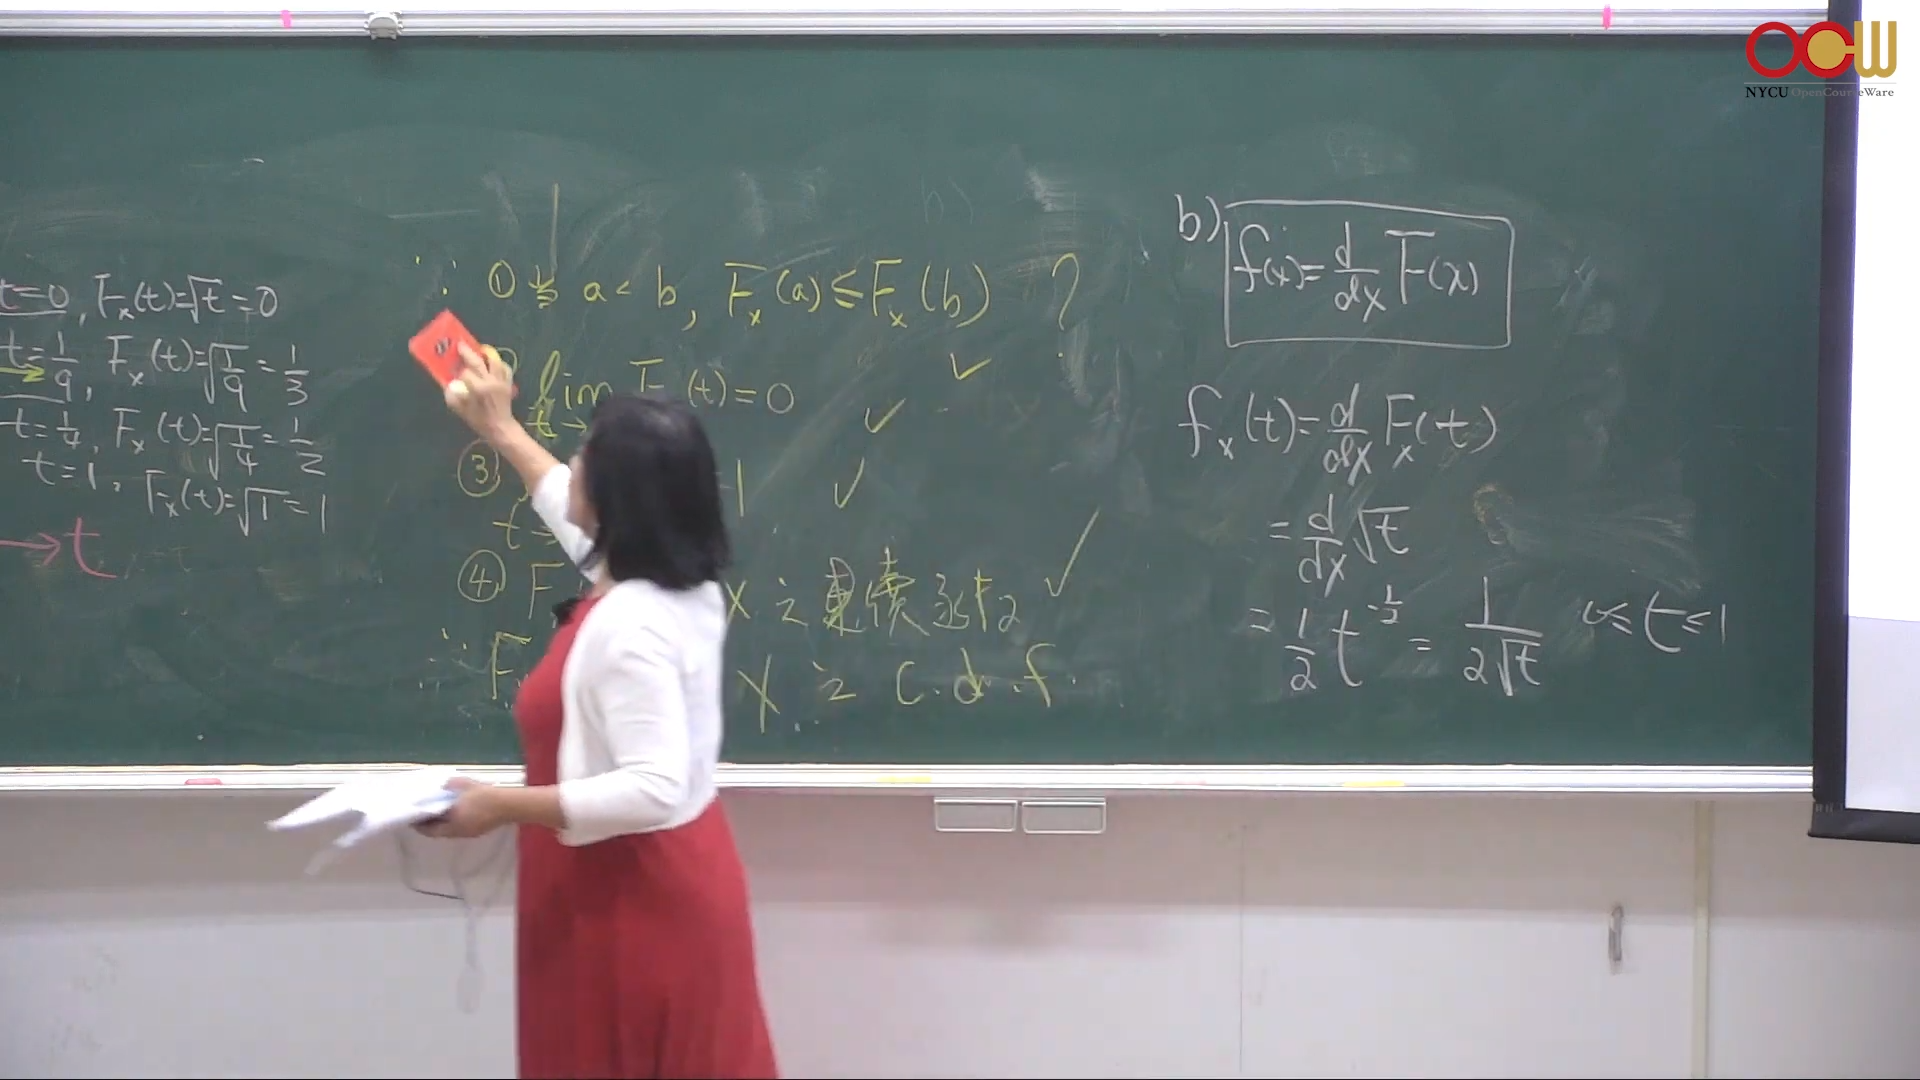 OCW
NYCU OpenCourseWare
t=0, Fx(t)=√t=0
t=1/9, Fx(t)=√(1/9)=1/3
t=1/4, Fx(t)=√(1/4)=1/2
t=1, Fx(t)=√1=1
→t
∵ ① 若 a<b, Fx(a)≤Fx(b) ?
✓
lim F (t)=0 ✓
t→
③ 1 ✓
t
④ F X 之連續函 ✓
∴ F X 之 c.d.f.
b) f(x)=d/dx F(x)
fx(t)=d/dx Fx(t)
=d/dx √t
=1/2 t^-1/2 = 1/(2√t) 0≤t≤1